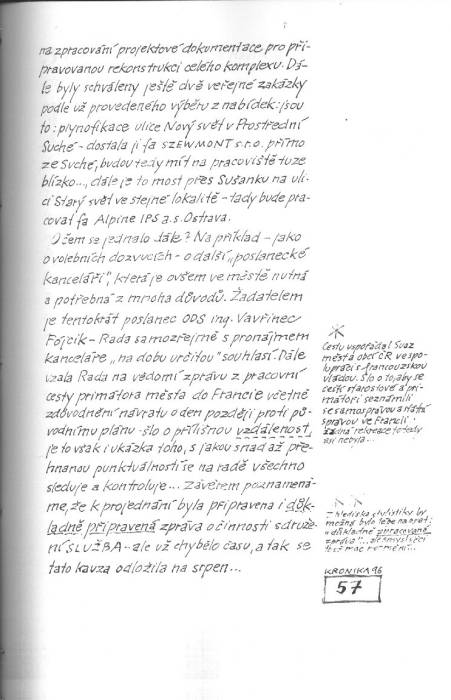 na zpracování projektové dokumentace pro při-
pravovanou rekonstrukci celého komplexu. Dá-
le byly schváleny ještě dvě veřejné zakázky
podle už provedeného výběru z nabídek: jsou
to: plynofikace ulice Nový svět v Prostřední
Suché – dostala ji fa SZEWMONT s.r.o. přímo
ze Suché, budou tedy mít na pracoviště tuze
blízko..., dále je to most přes Sušanku na uli-
ci Starý svět ve stejné lokalitě – tady bude pra-
covat fa Alpine IPS a.s. Ostrava.
O čem se jednalo dále? Na příklad – jako
o volebních dozvucích – o další „poslanecké
kanceláři", která je ovšem ve městě nutná
a potřebná z mnoha důvodů. Žadatelem
je tentokrát poslanec ODS ing. Vavřinec
Fojcik – Rada samozřejmě s pronájmem
kanceláře „na dobu určitou" souhlasí. Dále
vzala Rada na vědomí zprávu z pracovní
cesty primátora města do Francie včetně
zdůvodnění návratu o den později proti pů-
vodnímu plánu – šlo o přílišnou vzdálenost,
je to však i ukázka toho, s jakou snad až pře-
hnanou punktuálností se na radě všechno
sleduje a kontroluje... Závěrem poznamená-
me, že k projednání byla připravena i důk-
ladně připravená zpráva o činnosti sdruže-
ní SLUŽBA – ale už chybělo času, a tak se
tato kauza odložila na srpen...
Cestu uspořádal Svaz
měst a obcí ČR ve spo-
lupráci s francouzskou
vládou. Šlo o to, aby se
čeští starostové a pri-
mátoři seznámili
se samosprávou a státní
správou ve Francii
žádná rekreace to tedy
asi nebyla...
Z hlediska stylistiky by
možná bylo lépe napsat:
„důkladně zpracovaná
zpráva"...
KRONIKA 96
57